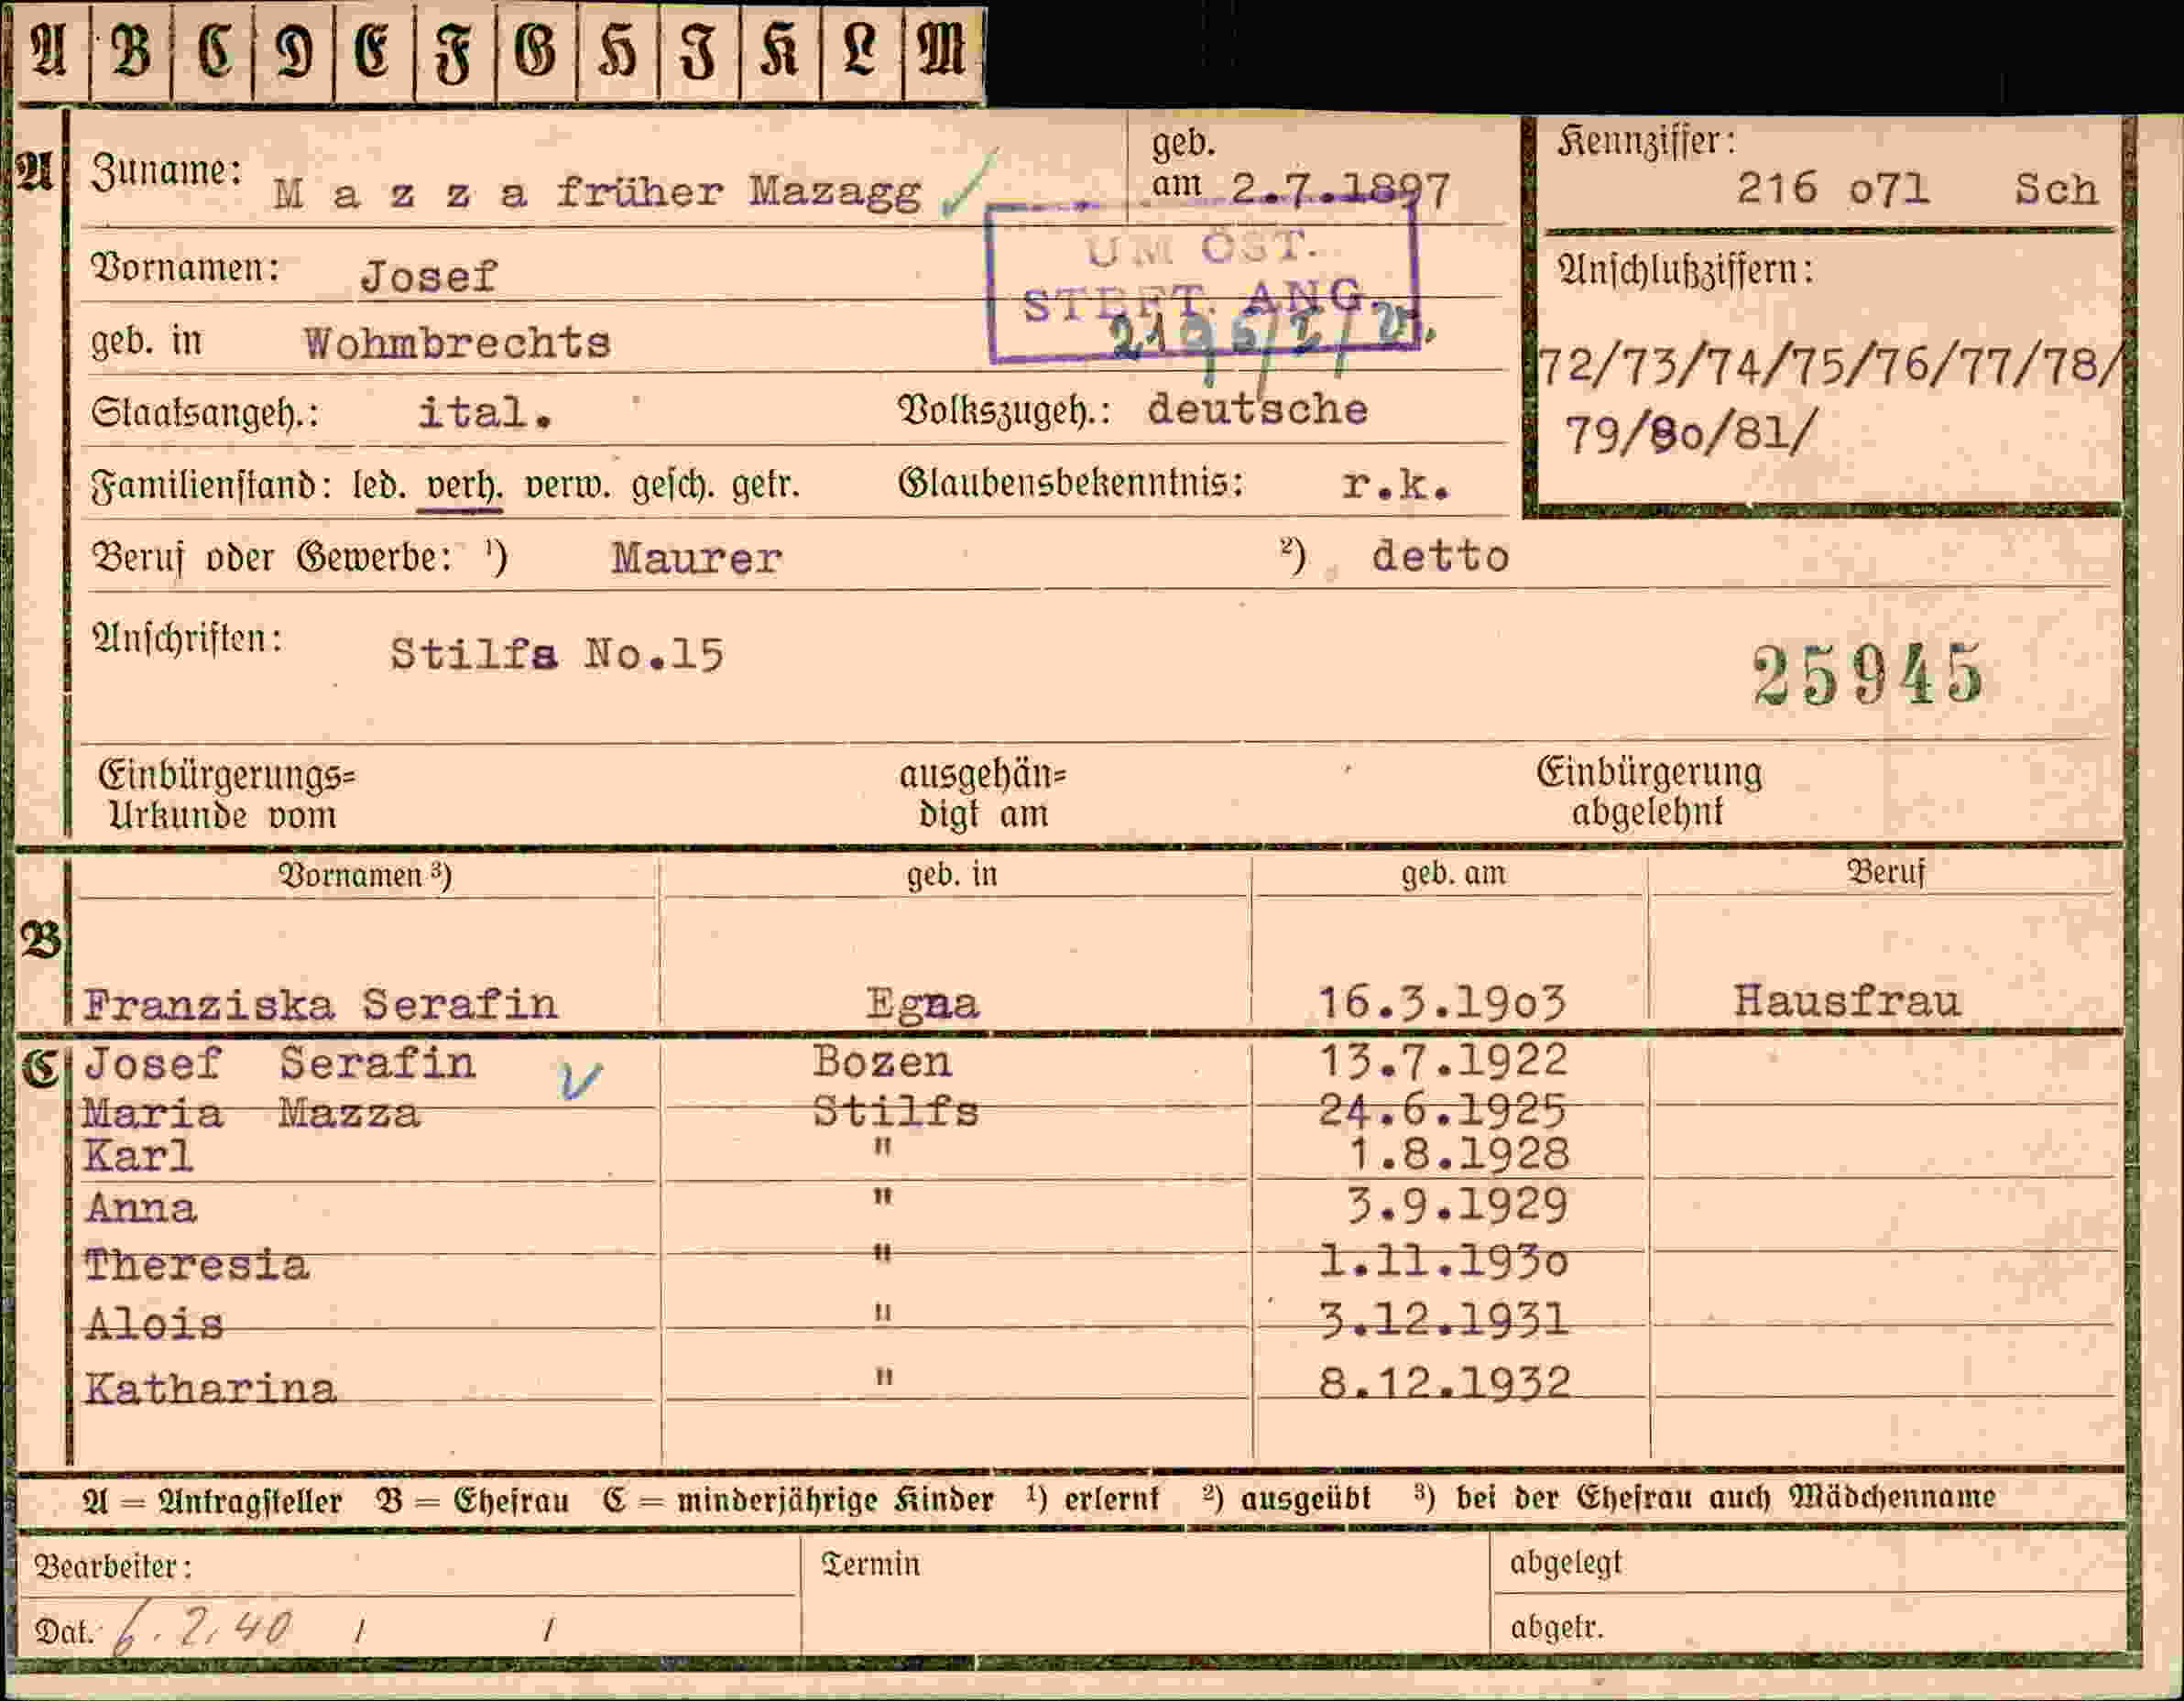 A B C D E F G H I K L M
A Zuname: M a z z a früher Mazagg geb. am 2.7.1897
Kennziffer: 216 o71 Sch
UM ÖST.
STBFT. ANG.
Vornamen: Josef
Anschlußziffern:
geb. in Wohmbrechts
72/73/74/75/76/77/78/
79/80/81/
Staatsangeh.: ital. Volkszugeh.: deutsche
Familienstand: led. verh. verw. gesch. getr. Glaubensbekenntnis: r.k.
Beruf oder Gewerbe: ¹) Maurer ²) detto
Anschriften: Stilfs No.15
25945
Einbürgerungs= ausgehän= Einbürgerung
Urkunde vom digt am abgelehnt
Vornamen ³) geb. in geb. am Beruf
B
Franziska Serafin Egna 16.3.19o3 Hausfrau
C Josef Serafin Bozen 13.7.1922
Maria Mazza Stilfs 24.6.1925
Karl " 1.8.1928
Anna " 3.9.1929
Theresia " 1.11.193o
Alois " 3.12.1931
Katharina " 8.12.1932
A = Antragsteller B = Ehefrau C = minderjährige Kinder ¹) erlernt ²) ausgeübt ³) bei der Ehefrau auch Mädchenname
Bearbeiter: Termin abgelegt
Dat. 6.2.40 / / abgetr.